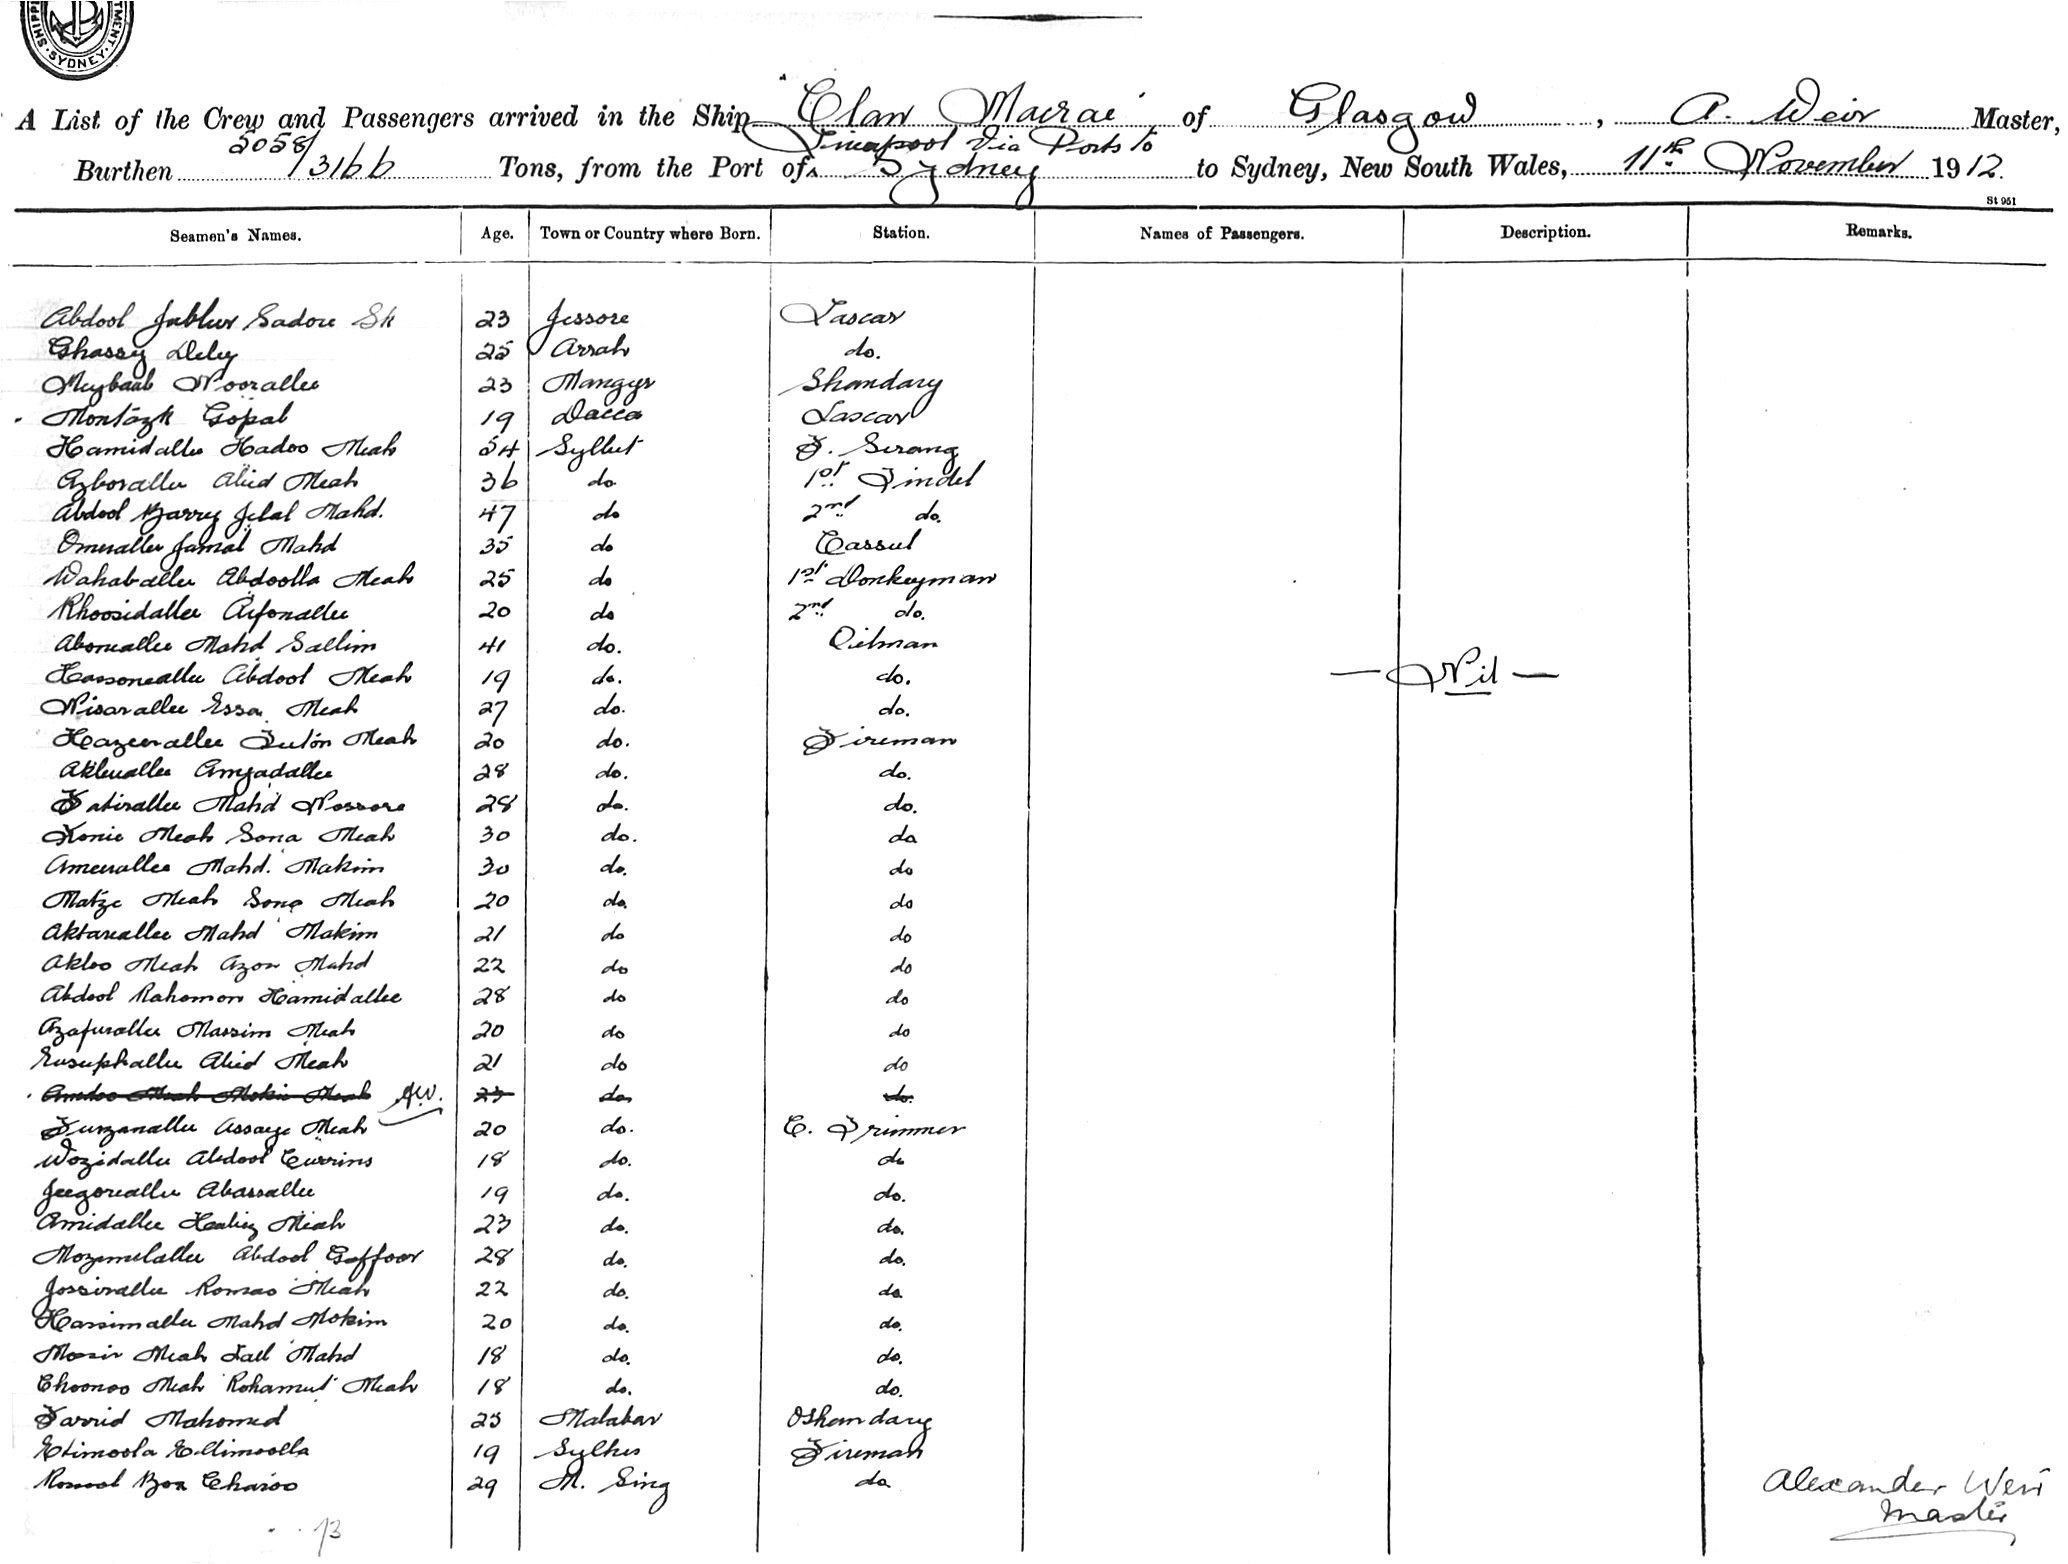 SHIPPI TMENT. SYDNEY
A List of the Crew and Passengers arrived in the Ship Clan Macrae of Glasgow, A. Weir Master,
Burthen 5058/3166 Tons, from the Port of Liverpool Via Ports to Sydney to Sydney, New South Wales, 11th November 1912.
St 951
Seamen's Names. Age. Town or Country where Born. Station. Names of Passengers. Description. Remarks.
Abdool Jubbur Sadou Sk 23 Jessore Lascar
Ghassy Deley 25 Arrah do.
Noorallee 23 Shandary
Gopal 19 Dacca Lascar
Hamidallee Hadoo Meah 54 Syllut F. Serang
Azborallee Abid Meah 36 do 1st Tindel
Abdool Barry Jelal Mahd. 47 do 2nd do.
Omurallee Jamal Mahd 35 do Cassul
Wahaballee Abdoolla Meah 25 do 1st Donkeyman
Khoosidallee Arfonallee 20 do 2nd do.
Aboreallee Mahd Sallim 41 do. Oilman
Hassoneallee Abdool Meah 19 do. do.
Nisarallee Essa Meah 27 do. do.
Meah 20 do. Fireman
Akbuallee Amjadallee 28 do. do.
Mahd Nossore 28 do. do.
Konie Meah Sona Meah 30 do. do
Ameerallee Mahd. Makim 30 do. do
Matze Meah Sona Meah 20 do. do
Aktareallee Mahd Makim 21 do do
Akloo Meah Azon Mahd 22 do do
Abdool Rahomon Hamidallee 28 do do
Azafurallee Massim Meah 20 do do
Eusuphallee Abid Meah 21 do do
Amdoo Meah Mokie Meah A.W. 23 do. do.
Furzanallee Assayc Meah 20 do. C. Trimmer
Wozidallee Abdool Currins 18 do. do
Jeegoreallee Abassallee 19 do. do.
Amidallee Meah 23 do. do.
Mozimilallee Abdool Goffoor 28 do. do.
Jossirallee Romao Meah 22 do. do
Hassimallee Mahd Mokim 20 do. do.
Mosir Meah Mahd 18 do. do.
Choonoo Meah Rohamut Meah 18 do. do.
Farrid Mahomed 23 Malabar Bhandary
Etimoola Elimoolla 19 Sylhes Fireman
Boa Charoo 29 M. Sing do
— Nil —
Alexander Weir
Master
73